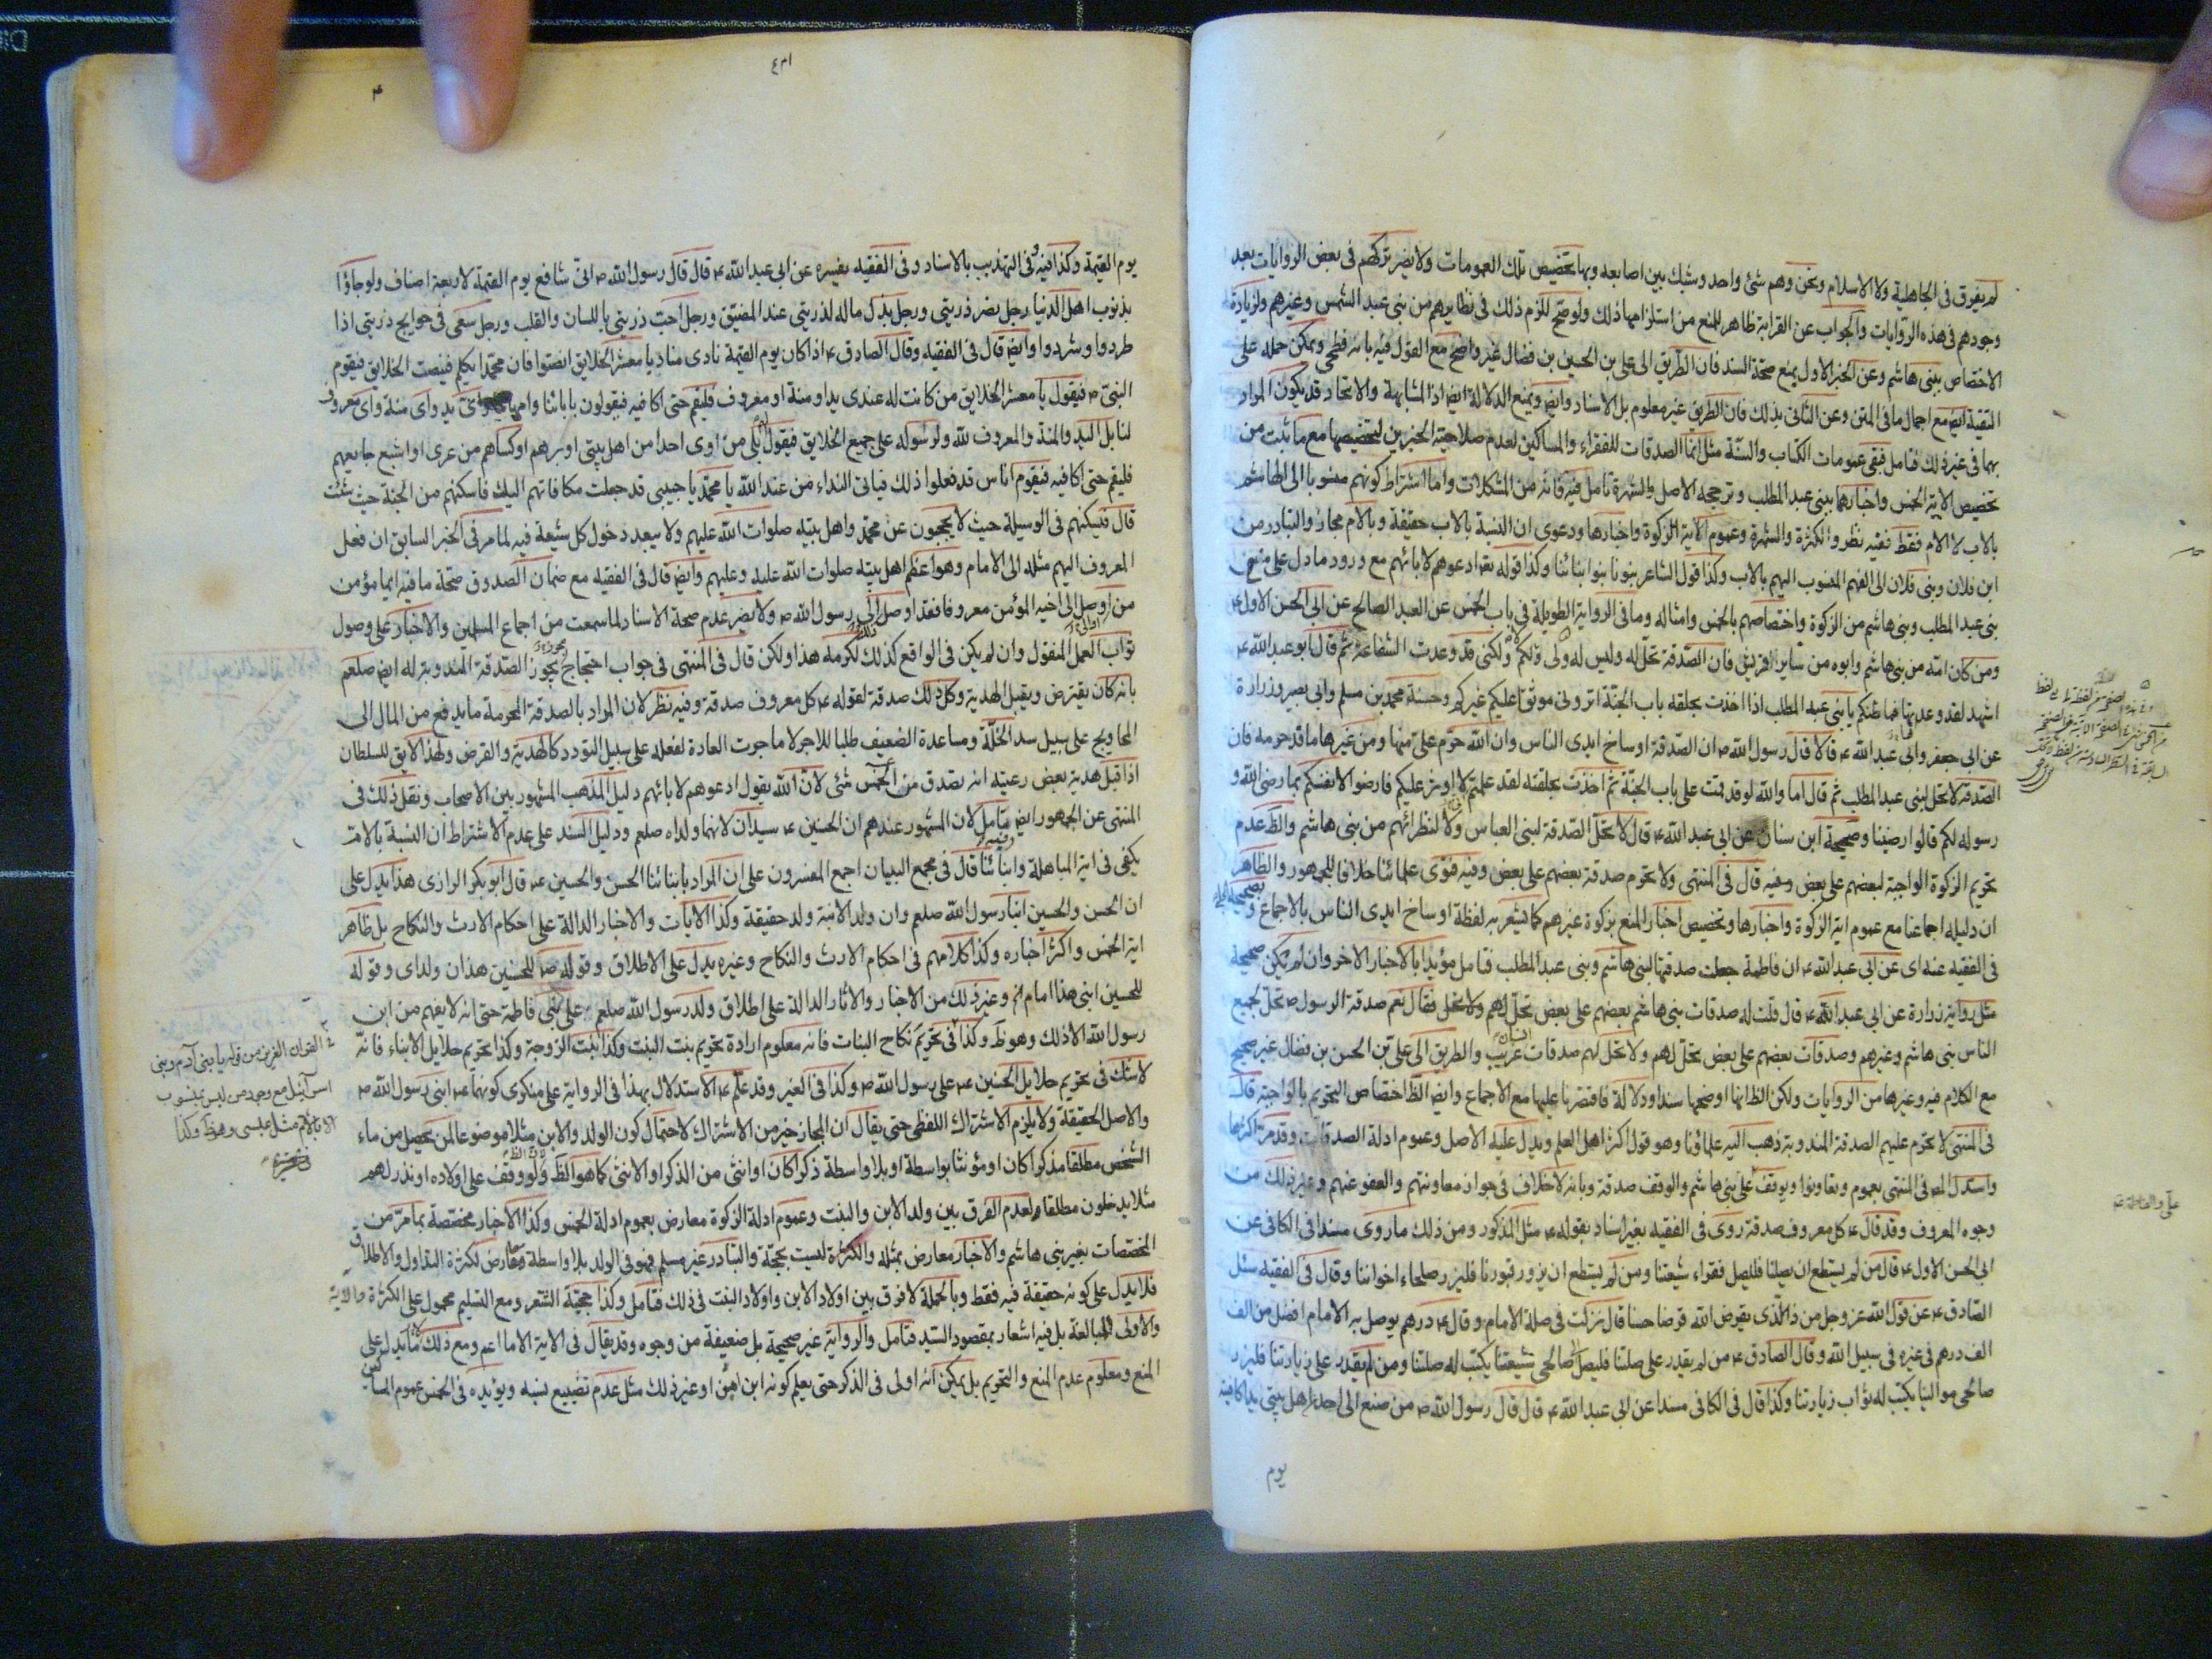 لم يفرق فى الجاهلية ولا الاسلام ونحن وهم شئ واحد وشبك بين اصابعه وبها تخصيص تلك العمومات ولا يضر تركهم فى بعض الروايات بعد
وجودهم فى هذه الروايات والجواب عن القرابة ظاهر للمنع من استلزامها ذلك ولو صح للزم ذلك فى نظايرهم من بنى عبد الشمس وغيرهم ولزيادة
الاختصاص ببنى هاشم وعن الخبر الاول يمنع صحة السند فان الطريق الى على بن الحسين بن فضال غير واضح مع القول فيه بانه فطحى ويمكن حمله على
التقية ايض مع اجمال ما فى المتن وعن الثانى بذلك فان الطريق غير معلوم بل الاسناد وايض ويمنع الدلالة ايض اذ المشابهة والاتحاد قد يكون المراد
بهما فى غير ذلك فتامل فبقى عمومات الكتاب والسنة مثل انما الصدقات للفقراء والمساكين لعدم صلاحية الخبرين لتخصيصها مع ما ثبت من
تخصيص الاية الخمس واخبارها ببنى عبد المطلب وترجحه الاصل والشهرة تامل فيه فانه من المشكلات واما اشتراط كونهم منسوبا الى الهاشم
بالاب لا الام فقط ففيه نظر والكثرة والشهرة وعموم الاية الزكوة واخبارها ودعوى ان النسبة بالاب حقيقة وبالام مجاز والتبادر من
ابن فلان وبنى فلان الى الفهم المنسوب اليهم بالاب وكذا قول الشاعر بنونا بنوا ابنائنا وكذا قوله تعه ادعوهم لابائهم مع ورود ما دل على منع
بنى عبد المطلب وبنى هاشم من الزكوة واختصاصهم بالخمس وامثاله وما فى الرواية الطويلة فى باب الخمس عن العبد الصالح عن ابى الحسن الاول ع
ومن كان امه من بنى هاشم وابوه من ساير قريش فان الصدقة تحل له وليس له ولى ولكم ولكنى قد وعدت الشفاعة ثم قال ابو عبد الله ع
اشهد لقد وعدها فما ظنكم يا بنى عبد المطلب اذا اخذت بحلقه باب الجنة اترونى موثرا عليكم غيركم وحسنة محمد بن مسلم وابى بصير وزرارة
عن ابى جعفر وابى عبد الله ع قالا قال رسول الله ص ان الصدقة اوساخ ايدى الناس وان الله حرم على منها ومن غيرها ما قد حرمه فان
الصدقة لا تحل لبنى عبد المطلب ثم قال اما والله لو قد قمت على باب الجنة ثم اخذت بحلقته لقد علمتم لا اوثر عليكم فارضوا لانفسكم بما رضى الله و
رسوله لكم قالوا رضينا وصحيحة ابن سنان عن ابى عبد الله ع قال لا تحل الصدقة لبنى العباس ولا لنظرائهم من بنى هاشم والظ عدم
تحريم الزكوة الواجبة لبعضهم على بعض وفيه قال فى المنتهى ولا تحرم صدقة بعضهم على بعض وفيه فتوى علمائنا خلافا للجمهور والظاهر
ان دليله اجماعنا مع عموم اية الزكوة واخبارها وتخصيص اخبار المنع بزكوة غيرهم كما يشعر به لفظة اوساخ ايدى الناس بالاجماع و
فى الفقيه عنه اى عن ابى عبد الله ع ان فاطمة جعلت صدقتها لبنى هاشم وبنى عبد المطلب فتامل مؤيدا بالاخبار الاخر وان لم تكن صحيحة
مثل رواية زرارة عن ابى عبد الله ع قال قلت له صدقات بنى هاشم بعضهم على بعض تحل لهم ولا تحل فقال نعم صدقة الرسول ص تحل لجميع
الناس بنى هاشم وغيرهم وصدقات بعضهم على بعض تحل لهم ولا تحل لهم صدقات غريب والطريق الى على بن الحسن بن فضال غير صحيح
مع الكلام فيه وغيرها من الروايات ولكن الظ انها اوضحها سندا ودلالة فاقتصرنا عليها مع الاجماع وايض الظ اختصاص التحريم بالواجبة قال
فى المنتهى لا تحرم عليهم الصدقة المندوبة ذهب اليه علماؤنا وهو قول اكثر اهل العلم ويدل عليه الاصل وعموم ادلة الصدقات وقد مر اكثرها
واستدل المه فى المنتهى بعموم وتعاونوا ويوقف على بنى هاشم والوقف صدقة وبانه لا خلاف فى جواز معاونتهم والعفو عنهم وغير ذلك من
وجوه المعروف وقد قال ع كل معروف صدقة روى فى الفقيه بغير اسناد بقوله ع مثل المذكور ومن ذلك ما روى مسندا فى الكافى عن
ابى الحسن الاول ع قال من لم يستطع ان يصلنا فليصل فقراء شيعتنا ومن لم يستطع ان يزور قبورنا فليزر صلحاء اخواننا وقال فى الفقيه سئل
الصادق ع عن قول الله عز وجل من ذا الذى يقرض الله قرضا حسنا قال نزلت فى صلة الامام وقال ع درهم يوصل به الامام افضل من الف
الف درهم فى غيره فى سبيل الله وقال الصادق ع من لم يقدر على صلتنا فليصل صالحى شيعتنا يكتب له صلتنا ومن لم يقدر على زيارتنا فليزر
صالحى موالينا يكتب له ثواب زيارتنا وكذا قال فى الكافى مسندا عن ابى عبد الله ع قال قال رسول الله ص من صنع الى احد من اهل بيتى يدا كافيته
يوم
يوم القيمة وكذا فيه وفى التهذيب بالاسناد وفى الفقيه بغيره عن ابى عبد الله ع قال قال رسول الله ص انى شافع يوم القيمة لاربعة اصناف ولو جاؤا
بذنوب اهل الدنيا رجل نصر ذريتى ورجل بذل ماله لذريتى عند المضيق ورجل احب ذريتى باللسان والقلب ورجل سعى فى حوايج ذريتى اذا
طردوا وشردوا وايض قال فى الفقيه وقال الصادق ع اذا كان يوم القيمة نادى مناد يا معشر الخلايق انصتوا فان محمدا يكلم فينصت الخلايق فيقوم
النبى ص فيقول يا معشر الخلايق من كانت له عندى يد او منة او معروف فليقم حتى اكافيه فيقولون بابائنا وامهاتنا واى يد واى منة واى معروف
لنا بل اليد والمنة والمعروف لله ولرسوله على جميع الخلايق فيقول بلى من اوى احدا من اهل بيتى او برهم او كساهم من عرى او اشبع جايعهم
فليقم حتى اكافيه فيقوم اناس قد فعلوا ذلك فياتى النداء من عند الله يا محمد يا حبيبى قد جعلت مكافاتهم اليك فاسكنهم من الجنة حيث شئت
قال فيسكنهم فى الوسيلة حيث لا يحجبون عن محمد واهل بيته صلوات الله عليهم ولا يبعد دخول كل شيعة فيه لما مر فى الخبر السابق ان فعل
المعروف اليهم مثله الى الامام وهو اعظم اهل بيته صلوات الله عليه وعليهم وايض قال فى الفقيه مع ضمان الصدوق صحة ما فيه ايما مؤمن
من اوصل الى اخيه المؤمن معروفا فقد اوصل الى رسول الله ص ولا يضر عدم صحة الاسناد لما سمعت من اجماع المسلمين والاخبار على وصول
ثواب العمل المنقول وان لم يكن فى الواقع كذلك لكرمه هذا ولكن قال فى المنتهى فى جواب احتجاج مجوز الصدقة المندوبة له ايض صلعم
بانه كان يقترض ويقبل الهدية وكل ذلك صدقة لقوله ع كل معروف صدقة وفيه نظر لان المراد بالصدقة المحرمة ما يدفع من المال الى
المحاويج على سبيل سد الخلة ومساعدة الضعيف طلبا للاجر لا ما جرت العادة لفعله على سبيل التودد كالهدية والقرض ولهذا لا يق للسلطان
اذا قبل هدية بعض رعيته انه تصدق من الخمس شئ لان الله يقول ادعوهم لابائهم دليل المذهب المشهور بين الاصحاب ونقل ذلك فى
المنتهى عن الجمهور ايض تامل لان المشهور عندهم ان الحسنين ع سيدان لانهما ولداه صلعم ودليل السند على عدم الاشتراط ان النسبة بالام
يكفى فى اية المباهلة وابنائنا قال فى مجمع البيان اجمع المفسرون على ان المراد بابنائنا الحسن والحسين ع قال ابو بكر الرازى هذا يدل على
ان الحسن والحسين ابنا رسول الله صلعم وان ولد الابنة ولد حقيقة وكذا الايات والاخبار الدالة على احكام الارث والنكاح بل ظاهر
اية الخمس واكثر اخباره وكذا كلامهم فى احكام الارث والنكاح وغيره يدل على الاطلاق وقوله ص للحسنين هذان ولداى وقوله
للحسين ابنى هذا امام الخ وغير ذلك من الاخبار والاثار الدالة على اطلاق ولد رسول الله صلعم على بنى فاطمة حتى انه لا يفهم من ابن
رسول الله الا ذلك وهو ظ وكذا فى تحريم نكاح البنات فانه معلوم ارادة تحريم بنت البنت وكذا بنت الزوجة وكذا تحريم حلايل الابناء فانه
لا شك فى تحريم حلايل الحسنين ع على رسول الله ص وكذا فى الغير وقد علم ع الاستدلال بهذا فى الرواية على منكرى كونهما ع ابنى رسول الله ص
والاصل الحقيقة ولا يلزم الاشتراك اللفظى حتى يقال ان المجاز خير من الاشتراك لاحتمال كون الولد والابن مثلا موضوعا لمن يحصل من ماء
الشخص مطلقا مذكرا كان او مؤنثا بواسطة او بلا واسطة ذكرا كان او انثى من الذكر او الانثى كما هو الظ ولو وقف على اولاده او نذر لهم
مثلا يدخلون مطلقا ولعدم الفرق بين ولد الابن والبنت وعموم ادلة الزكوة معارض بعموم ادلة الخمس وكذا الاخبار مختصة بما مر من
المخصصات بغير بنى هاشم والاخبار معارض بمثله والكثرة ليست بحجة والتبادر غير مسلم فهو فى الولد بلا واسطة معارض لكثرة التداول والاطلاق
فلا يدل على كونه حقيقة فيه فقط وبالجملة لا فرق بين اولاد الابن واولاد البنت فى ذلك فتامل وكذا حجية الشعر ومع التسليم محمول على الكثرة والاية
والاولى المبالغة بل فيه اشعار بمقصود السيد فتامل والرواية غير صحيحة بل ضعيفة من وجوه وقد يقال فى الاية الاما اعم ومع ذلك لا يدل على
المنع ومعلوم عدم المنع والتحريم بل يمكن انه اولى فى الذكر حتى يعلم كونه ابن ايهن او غير ذلك مثل عدم تضييع نسبه ويؤيده فى الخمس عموم المساكين
فى القران العزيز من قوله يا بنى آدم وبنى
اسرآئيل مع وجود من ليس بمنسوب
الا بالام مثل عيسى وهو ظ وكذا